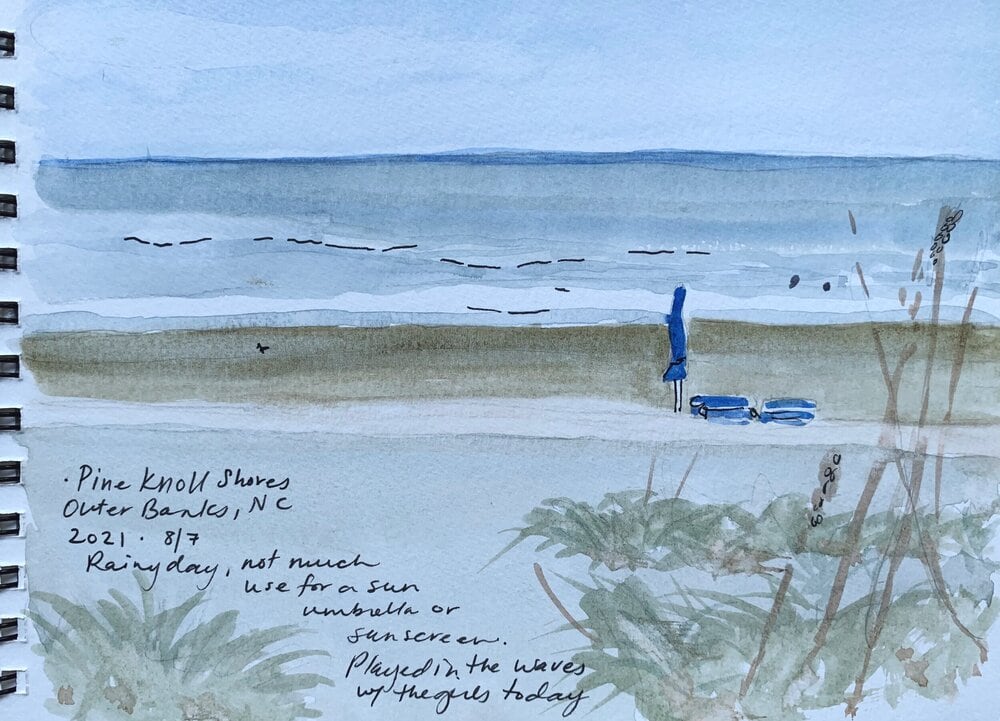 · Pine Knoll Shores
Outer Banks, NC
2021 · 8/7
Rainy day, not much
use for a sun
umbrella or
sunscreen.
Played in the waves
w/ the girls today